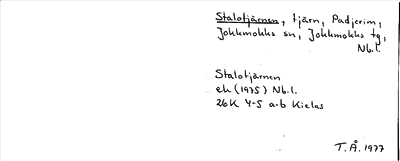 Stalotjärnen, tjärn, Padjerim,
Jokkmokks sn, Jokkmokks tg,
Nb.l.
Stalotjärnen
ek (1975) Nb.l.
26K 4-5 a-b Kielas
T.Å. 1977